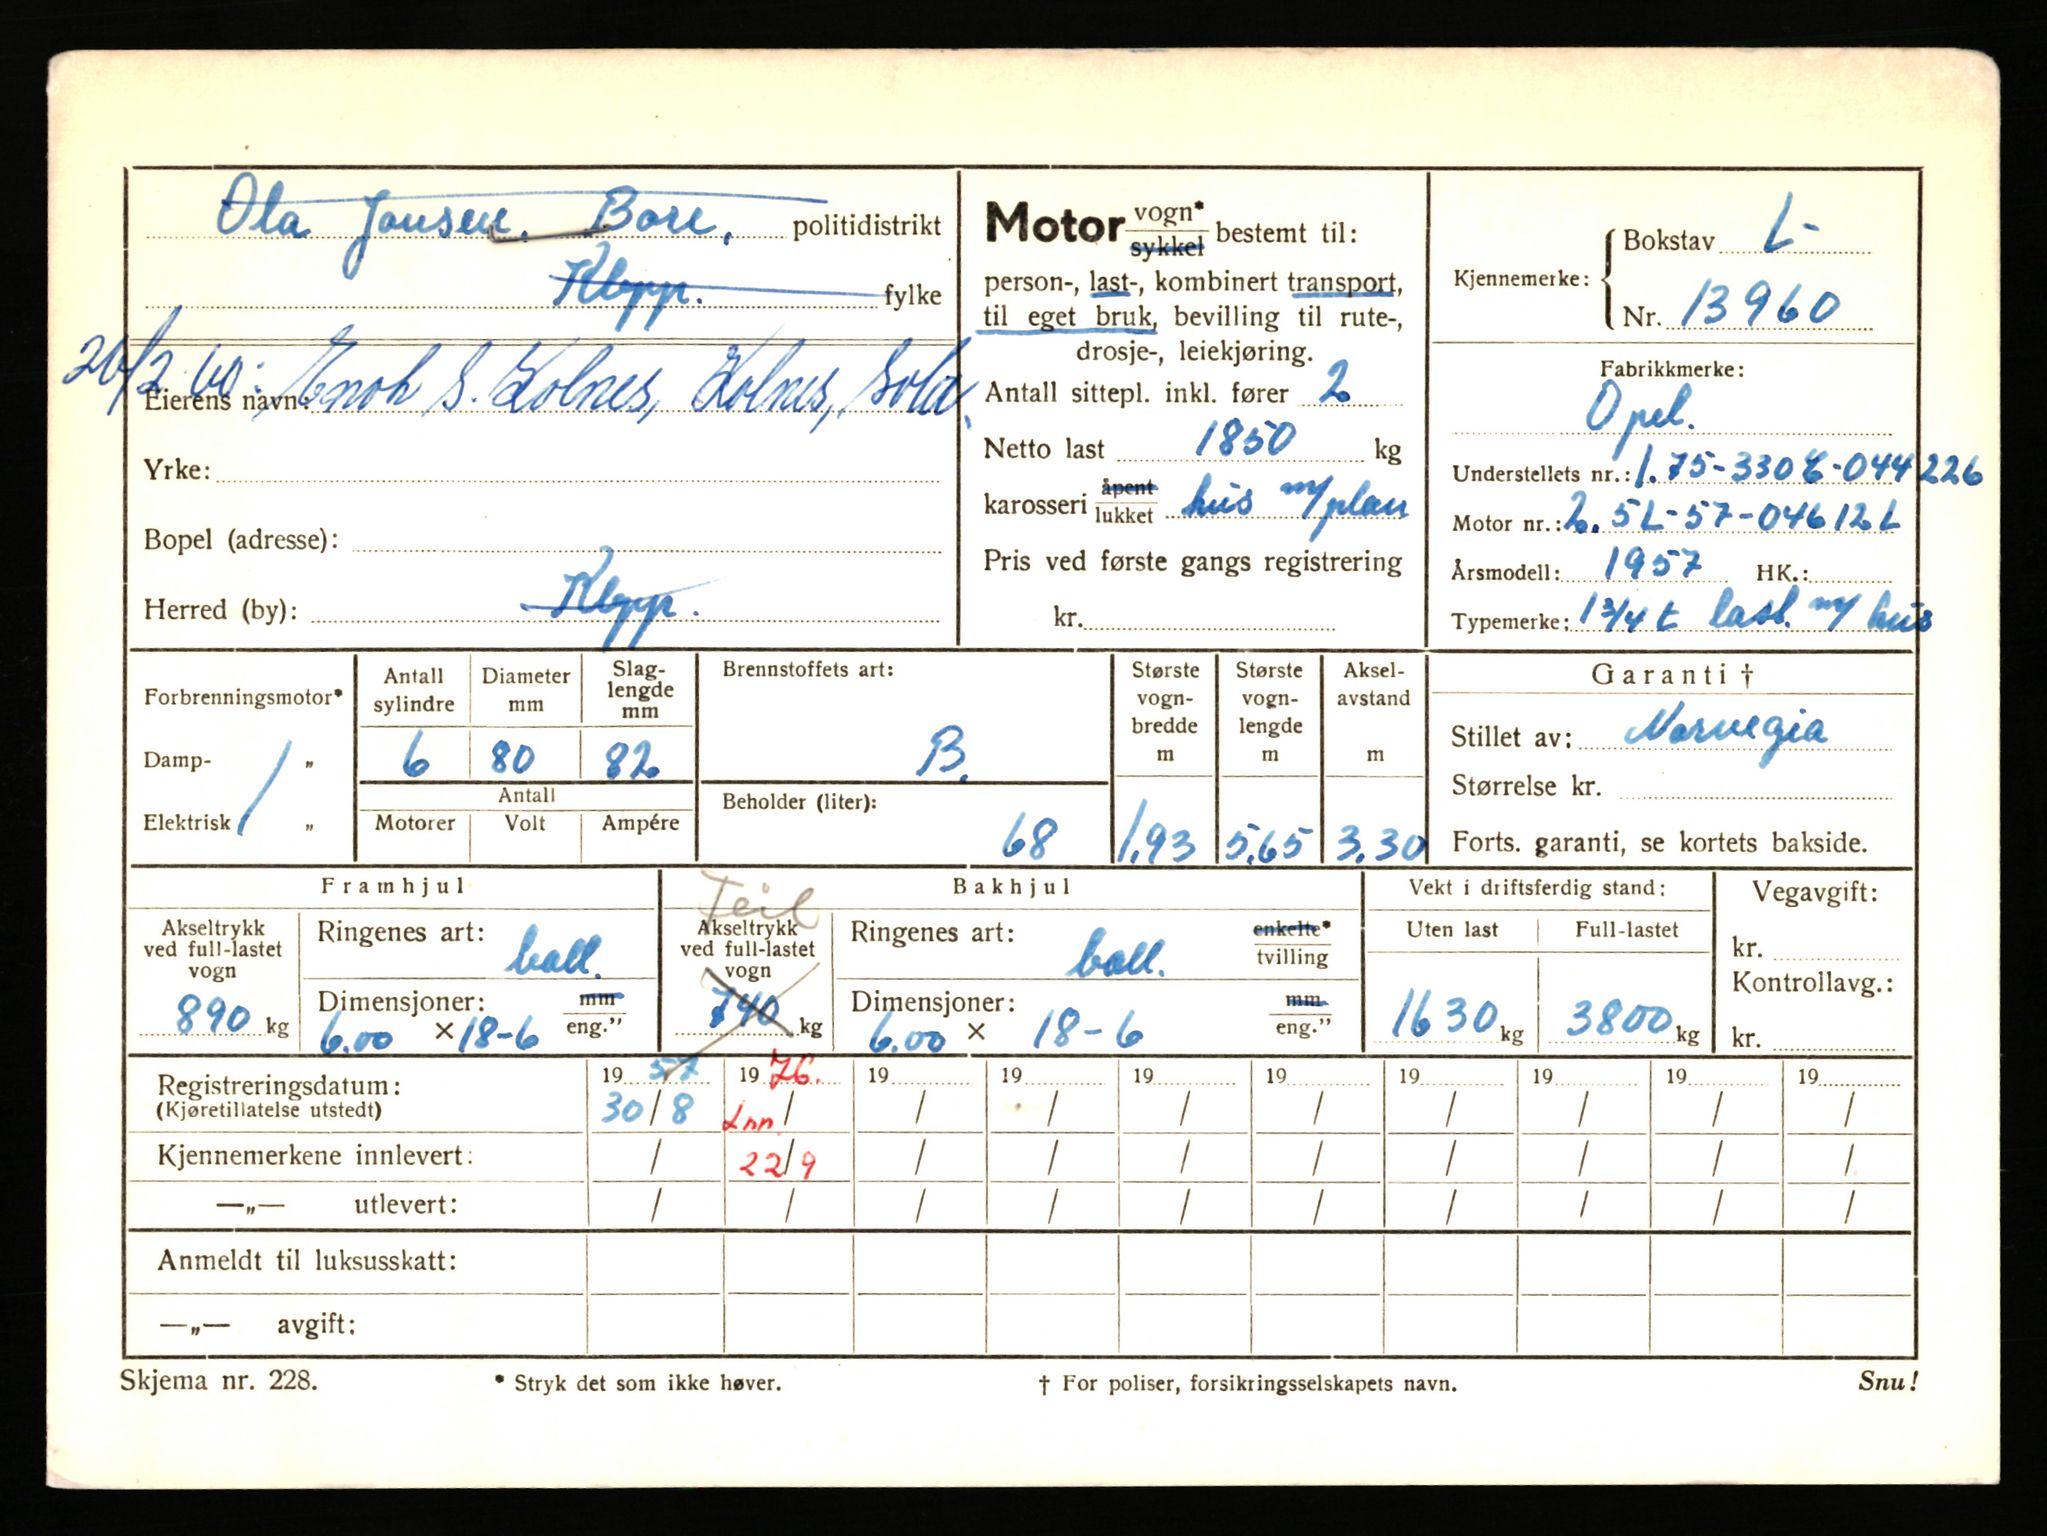 Ola Jonsen, Bore, politidistrikt
Klepp. fylke
26/2 60: Enok S. Kolnes, Kolnes, Sola.
Eierens navn:
Yrke:
Bopel (adresse):
Herred (by): Klepp.
Motor vogn* sykkel bestemt til:
person-, last-, kombinert transport,
til eget bruk, bevilling til rute-,
drosje-, leiekjøring.
Antall sittepl. inkl. fører 2
Netto last 1850 kg
karosseri åpent lukket hus m/plan
Pris ved første gangs registrering
kr.
Kjennemerke: Bokstav L-
Nr. 13960
Fabrikkmerke:
Opel.
Understellets nr.: 1.75-330 -044226
Motor nr.: 2.5L-57-04612L
Årsmodell: 1957 HK.:
Typemerke: 1 3/4 t last. m/ hus
Forbrenningsmotor*
Damp- „
Elektrisk „
Antall sylindre Diameter mm Slag-lengde mm
6 80 82
Antall
Motorer Volt Ampére
Brennstoffets art:
B.
Beholder (liter):
68
Største vogn-bredde m 1,93
Største vogn-lengde m 5,65
Aksel-avstand m 3.30
Garanti †
Stillet av: Norvegia
Størrelse kr.
Forts. garanti, se kortets bakside.
Framhjul
Akseltrykk ved full-lastet vogn
890 kg
Ringenes art: ball.
Dimensjoner: mm eng."
6.00 × 18-6
Feil
Bakhjul
Akseltrykk ved full-lastet vogn
740 kg
Ringenes art: ball. enkelte* tvilling
Dimensjoner: mm eng."
6.00 × 18-6
Vekt i driftsferdig stand:
Uten last Full-lastet
1630 kg 3800 kg
Vegavgift:
kr.
Kontrollavg.:
kr.
Registreringsdatum: 19 57 19 76. 19 19 19 19 19 19 19 19
(Kjøretillatelse utstedt) 30/8 Inn / / / / / / / / /
Kjennemerkene innlevert: / 22/9 / / / / / / / /
—„— utlevert: / / / / / / / / / /
Anmeldt til luksusskatt:
—„— avgift:
Skjema nr. 228. * Stryk det som ikke høver. † For poliser, forsikringsselskapets navn. Snu!